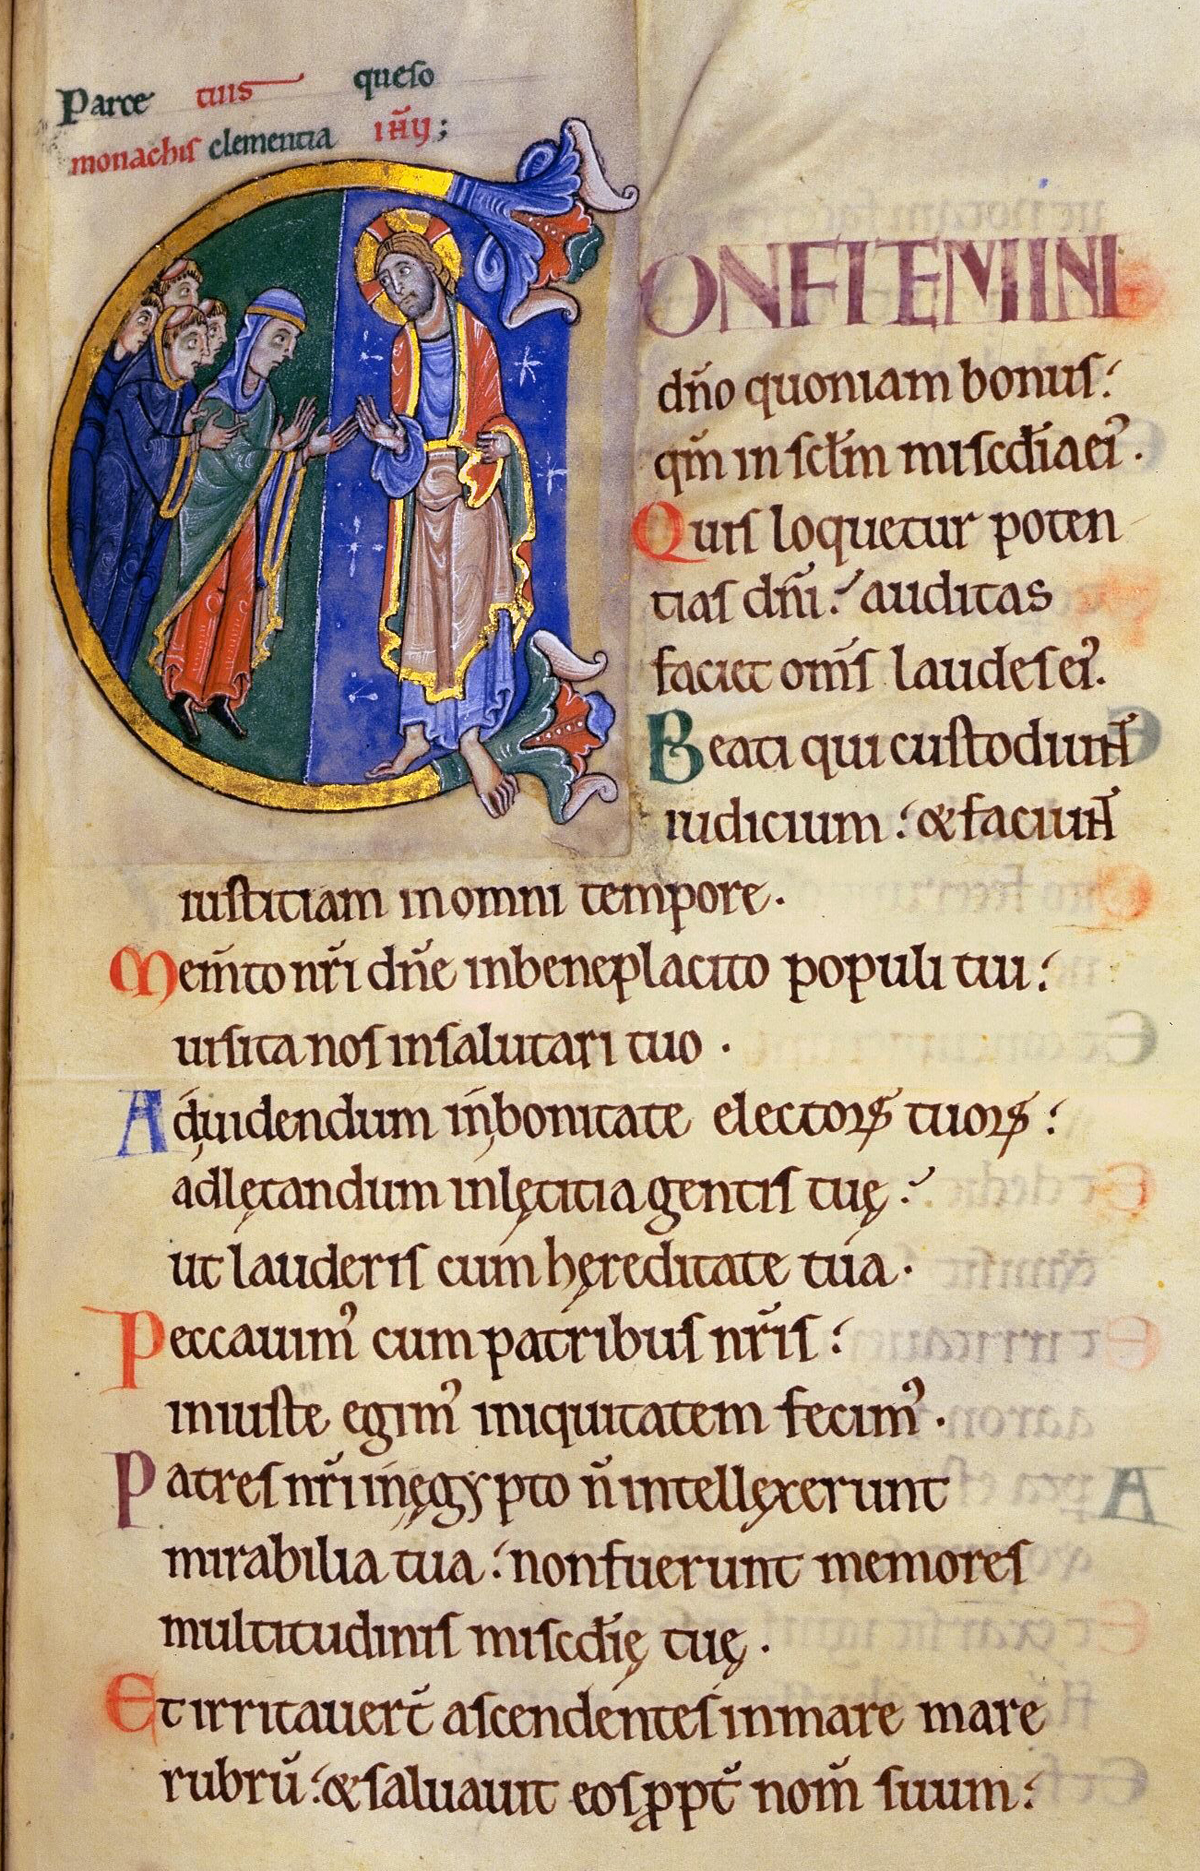 Parce tuis queso
monachis clementia ihu̅;
CONFITEMINI
dn̅o quoniam bonus:
qm̅ in sclm̅ miscd̅ia ei᾽.
Quis loquetur poten
tias dn̅i: auditas
faciet om̅s laudes ei᾽.
Beati qui custodiun̅t
iudicium: & faciun̅t
iustitiam in omni tempore.
Mem̅to nr̅i dn̅e in beneplacito populi tui:
uisita nos in salutari tuo.
Ad uidendum in bonitate electorꝝ tuorꝝ:
ad lętandum in lętitia gentis tuę:
ut lauderis cum hęreditate tua.
Peccauim᾽ cum patribus nr̅is:
iniuste egim᾽ iniquitatem fecim᾽.
Patres nr̅i in ęgypto n̅ intellęxerunt
mirabilia tua: non fuerunt memores
multitudinis miscd̅ię tuę.
Et irritauer̅t ascendentes in mare mare
rubru̅: & saluauit eos ꝓpt̅ nom̅ suum: